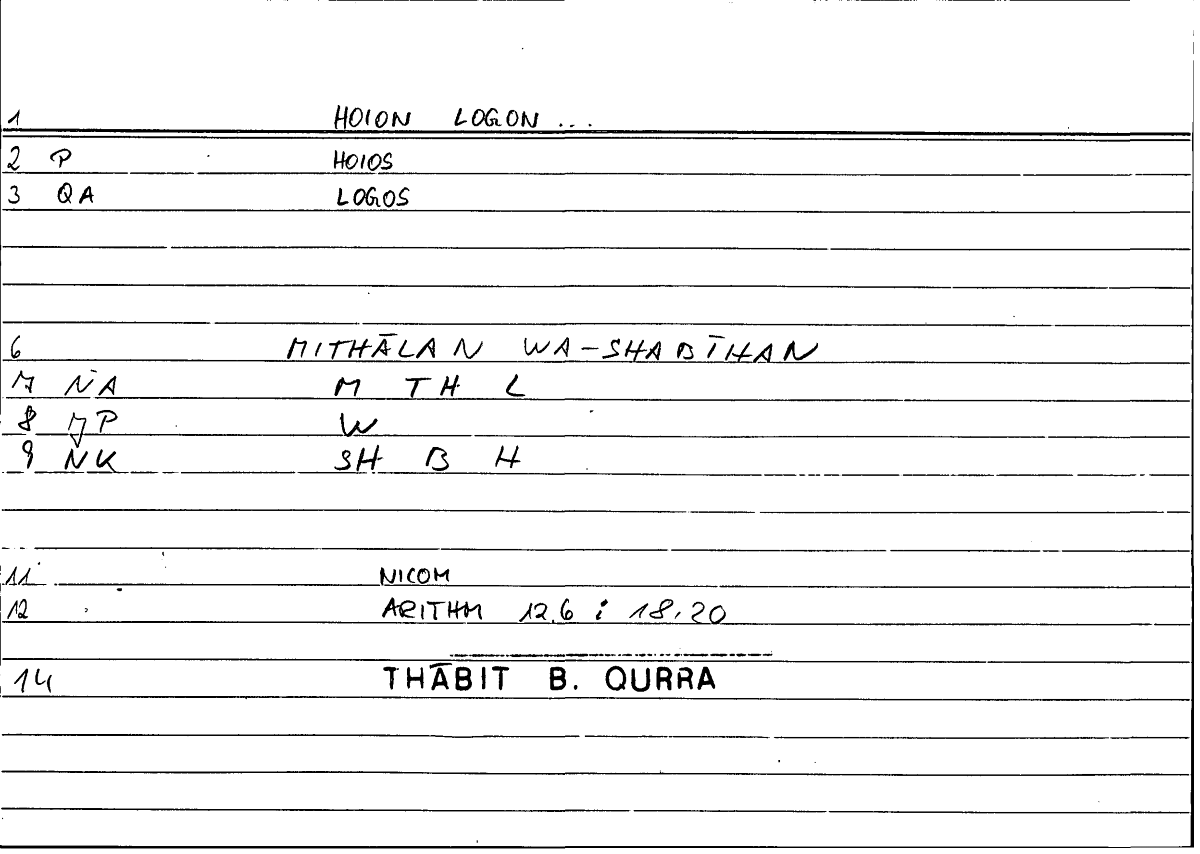 1 HOION LOGON ...
2 P HOIOS
3 QA LOGOS
6 MITHĀLAN WA-SHABĪHAN
7 NA M TH L
8 JP W
9 NK SH B H
11 NICOM
12 ARITHM 12.6 ; 18.20
14 THĀBIT B. QURRA